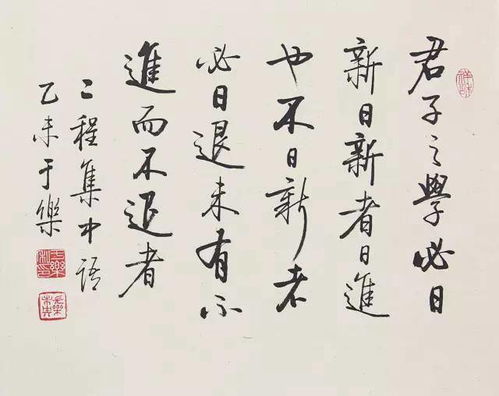 君子之學必日
新日新者日進
也不日新者
必日退未有不
進而不退者
二程集中語
乙未于樂